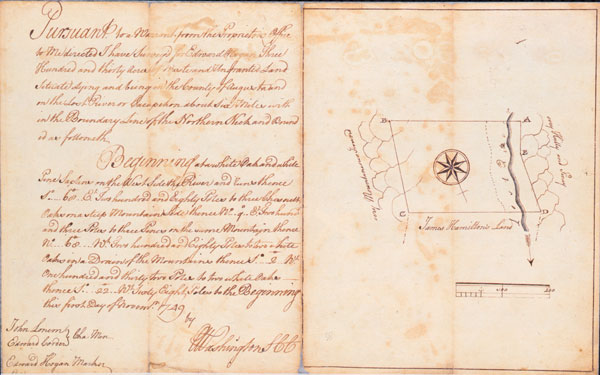 Pursuant to a Warrant from the Proprietors Office
to Me directed I have Surveyed for Edward Hogan Three
Hundred and thirty Acres of waste and Ungranted Land
Situated lying and being in the County of Augusta and
on the Lost River or Cacapehon about Six Miles with
in the Boundary Line of the Northern Neck and Bound
ed as followeth
Beginning at a white Oak and white
Pine Saplin on the West Side the River and runs thence
So. 68 Et. Two hundred and Eighty Poles to three Chesnutt
Oaks on a Steep Mountain Side thence No. Et. Two hundred
and three Poles to three Pines on the same Mountain thence
No. 68 Wt. Two hundred and Eighty Poles to two white
Oaks in a Drain of the Mountains thence So. 2 Wt.
One hundred and thirty two Poles to two white Oaks
thence So. 22 Wt. Sixty Eight Poles to the Beginning
this first Day of Novemr. 1749
by
GWashington SCC
John Lonem
Edward Corder } Cha. Men
Edward Hogan Marker
B
A
C
D
very Hilly and Piney
James Hamilton's Land
100
200